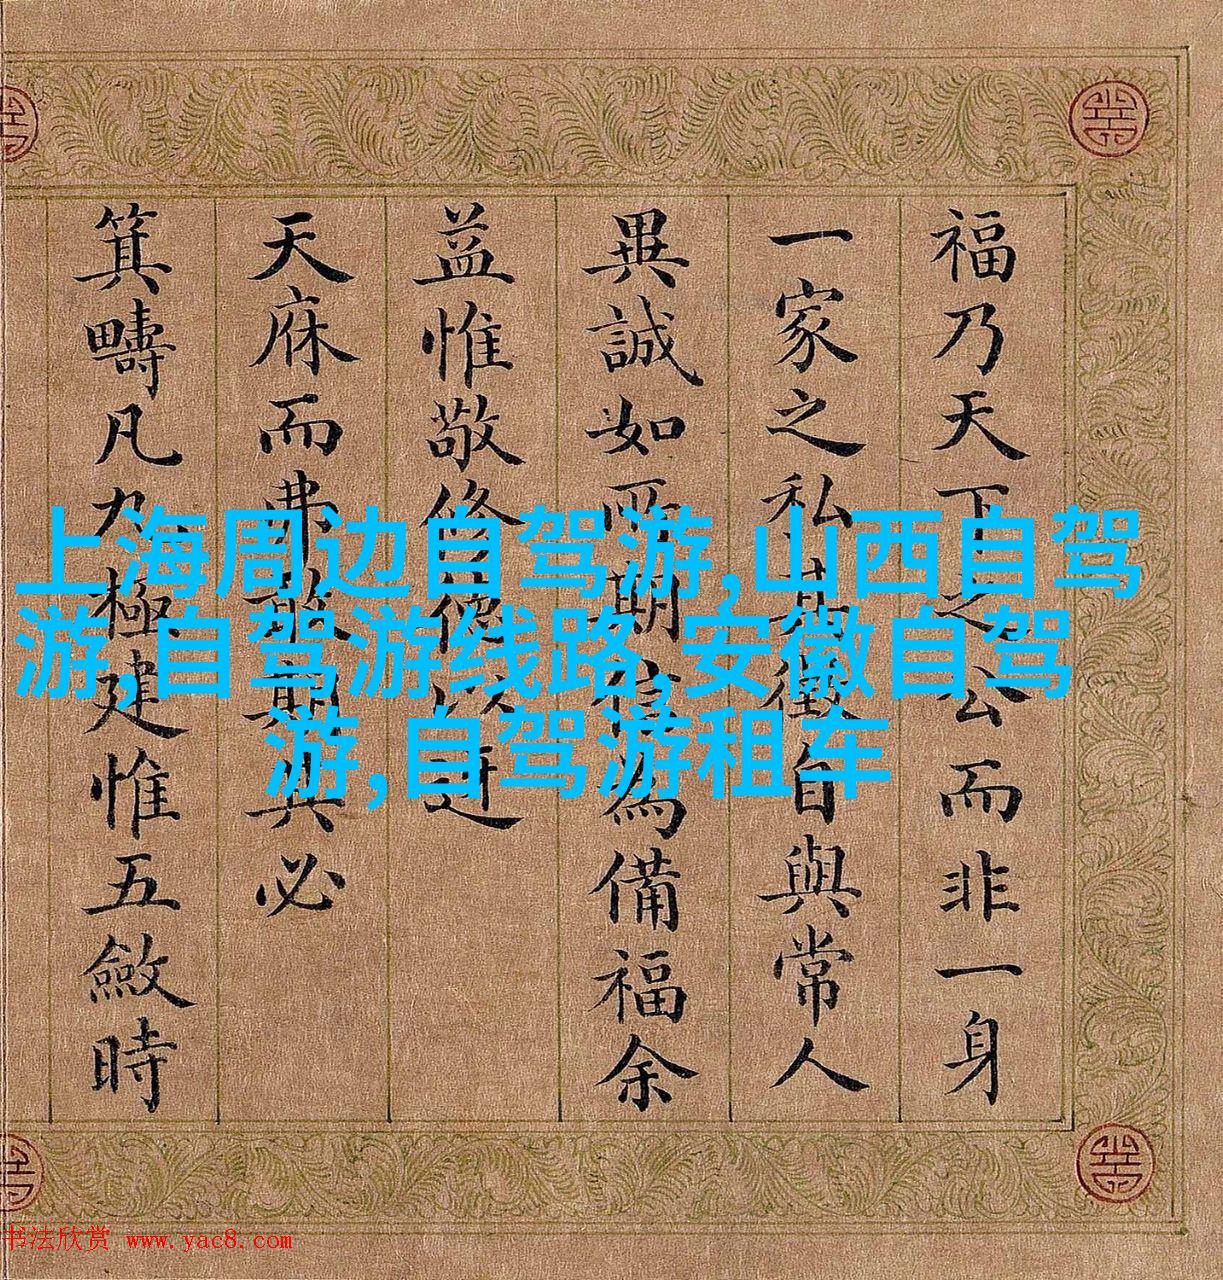 福乃天下之公而非一身
一家之私其徵自與常人
異誠如所期為備福余
益惟敬修德以迓
天庥而弗敢期其必
箕疇凡九極建惟五斂時
上海周边自驾游,山西自驾
游,自驾游线路,安徽自驾
游,自驾游租车
书法欣赏 www.yac8.com